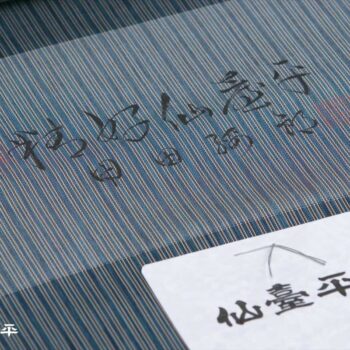 精好仙臺平
甲田綏郎
仙臺平
平